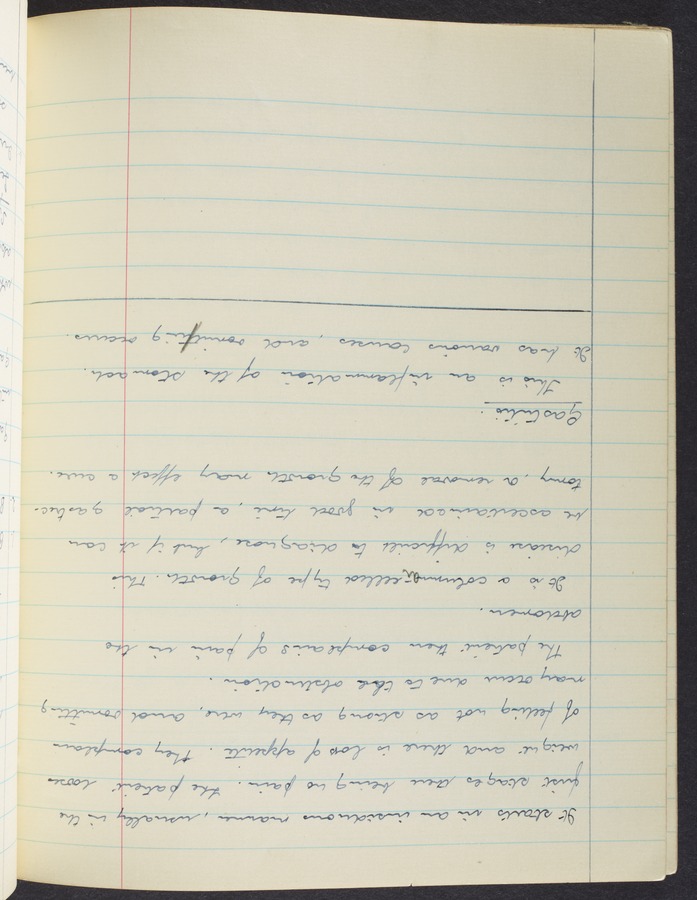 It starts in an insiduous manner, usually in the
first stages there being no pain. The patient looses
weight and there is loss of appetite. They complain
of feeling not as strong as they were, and vomitting
may occur due to the obstruction.
The patient then complains of pain in the
abdomen.
It is a columnar celled type of growth. This
disease is difficult to diagnose, but if it can
be ascertained in good time, a partial gastrec-
tomy, a removal of the growth may effect a cure.
Gastritis.
This is an inflammation of the stomach.
It has various causes, and vomiting occurs.